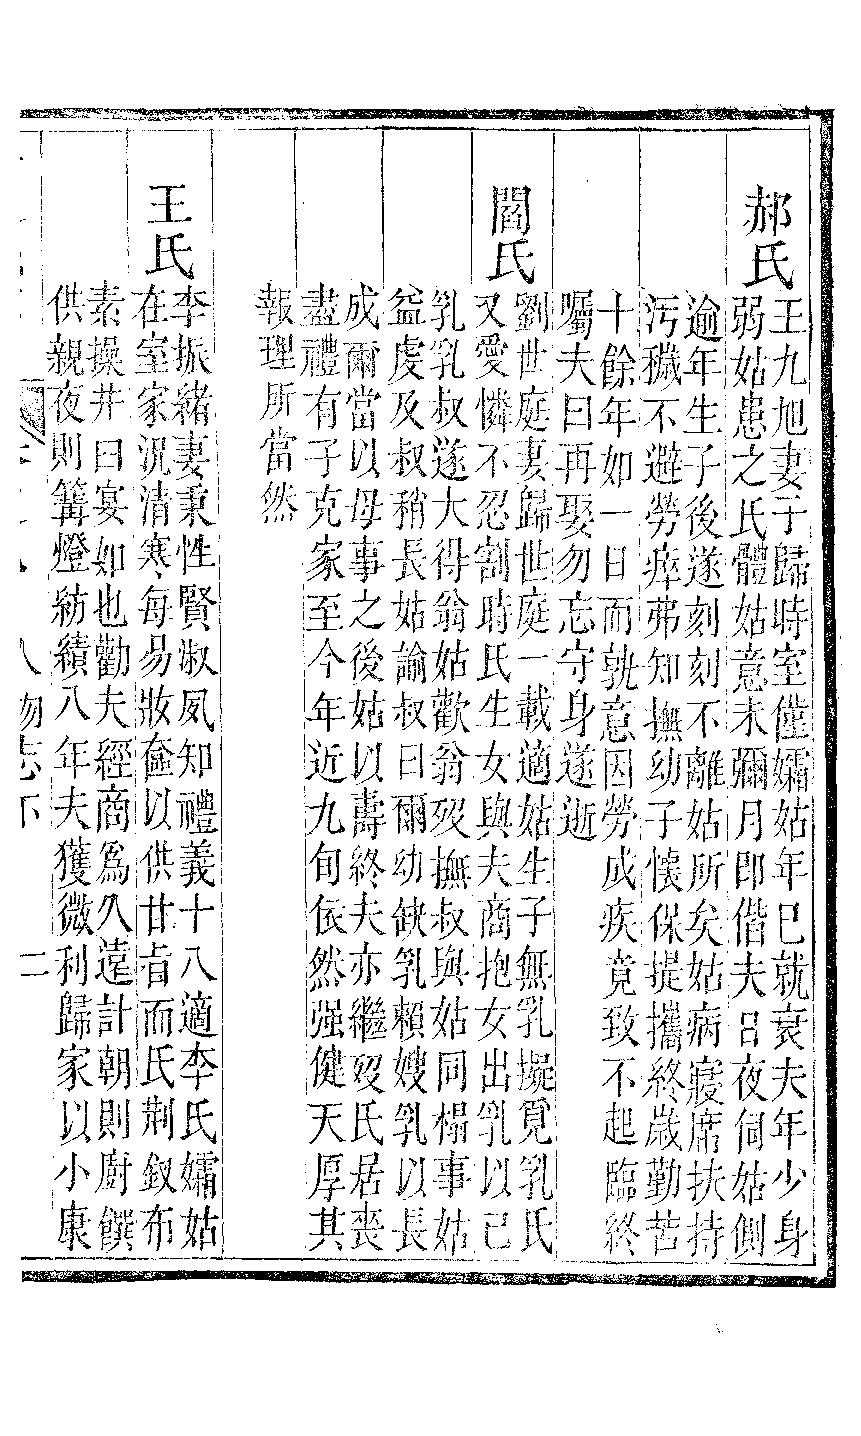 郝氏
王九旭妻于歸時室僅孀姑年已就衰夫年少身
弱姑患之氏體姑意未彌月即偕夫日夜伺姑側
逾年生子後遂刻刻不離姑所矣姑病寢席扶持
汚穢不避勞瘁弗知撫幼子懷保提攜終歲勤苦
十餘年如一日而孰意因勞成疾竟致不起臨終
囑夫曰再娶勿忘守身遂逝
閻氏
劉世庭妻歸世庭一載適姑生子無乳擬覓乳氏
又愛憐不忍割時氏生女與夫商抱女出乳以己
乳乳叔遂大得翁姑歡翁歿撫叔與姑同榻事姑
益虔及叔稍長姑諭叔曰爾幼缺乳賴嫂乳以長
成爾當以母事之後姑以壽終夫亦繼歿氏居喪
盡禮有子克家至今年近九旬依然强健天厚其
報理所當然
王氏
李振緒妻秉性賢淑夙知禮義十八適李氏孀姑
在室家況清寒每易妝奩以供甘旨而氏荆釵布
素操井臼宴如也勸夫經商爲久遠計朝則廚饌
供親夜則篝燈紡績八年夫獲微利歸家以小康
人物志下
二